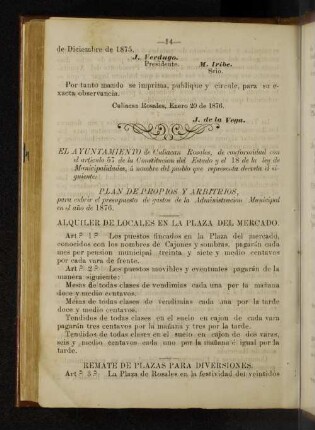 —14—
de Diciembre de 1875.
J. Verdugo.
Presidente. M. Iribe.
Srio.
Por tanto mando se imprima, publique y circule, para su e-
xacta observancia.
Culiacan Rosales, Enero 20 de 1876.
J. de la Vega.
EL AYUNTAMIENTO de Culiacan Rosales, de conformidad con
el artículo 57 de la Constitucion del Estado y el 18 de la ley de
Municipalidades, á nombre del pueblo que representa decreta el si-
guiente:
PLAN DE PROPIOS Y ARBITRIOS,
para cubrir el presupuesto de gastos de la Administracion Municipal
en el año de 1876.
ALQUILER DE LOCALES EN LA PLAZA DEL MERCADO.
Art. 1.° Los puestos fincados en la Plaza del mercado,
conocidos con los nombres de Cajones y sombras, pagarán cada
mes por pension municipal treinta, y siete y medio centavos
por cada vara de frente.
Art. 2.° Los puestos movibles y eventuales pagarán de la
manera siguiente:
Mesas de todas clases de vendimias cada una por la mañana
doce y medio centavos.
Mesas de todas clases de vendimias cada una por la tarde
doce y medio centavos.
Tendidos de todas clases en el suelo en cajon de cada vara
pagarán tres centavos por la mañana y tres por la tarde.
Tendidos de todas clase en el suelo en cajon de dos varas,
seis y medio centavos cada uno por la mañana é igual por la
tarde.
REMATE DE PLAZAS PARA DIVERSIONES.
Art. 3.° La Plaza de Rosales en la festividad del veintidos